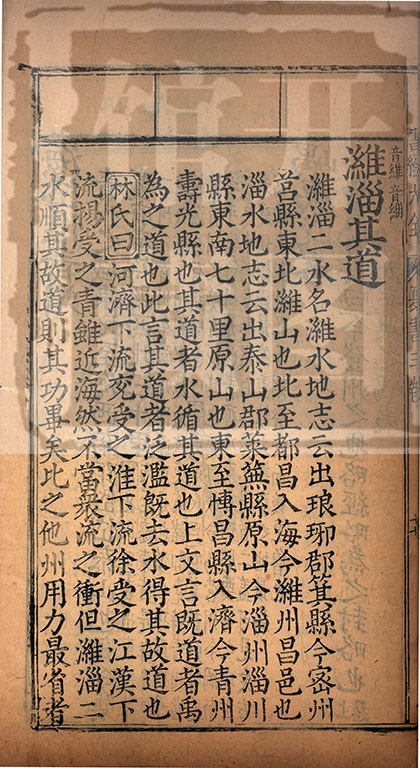 濰淄其道
音維 音緇
濰淄二水名濰水地志云出琅琊郡箕縣今宻州
莒縣東北濰山也北至都昌入海今濰州昌邑也
淄水地志云出泰山郡萊蕪縣原山今淄州淄川
縣東南七十里原山也東至愽昌縣入濟今青州
壽光縣也其道者水循其道也上文言旣道者禹
為之道也此言其道者泛濫旣去水得其故道也
林氏曰河濟下流兖受之淮下流徐受之江漢下
流揚受之青雖近海然不當衆流之衝但濰淄二
水順其故道則其功畢矣比之他州用力最省者